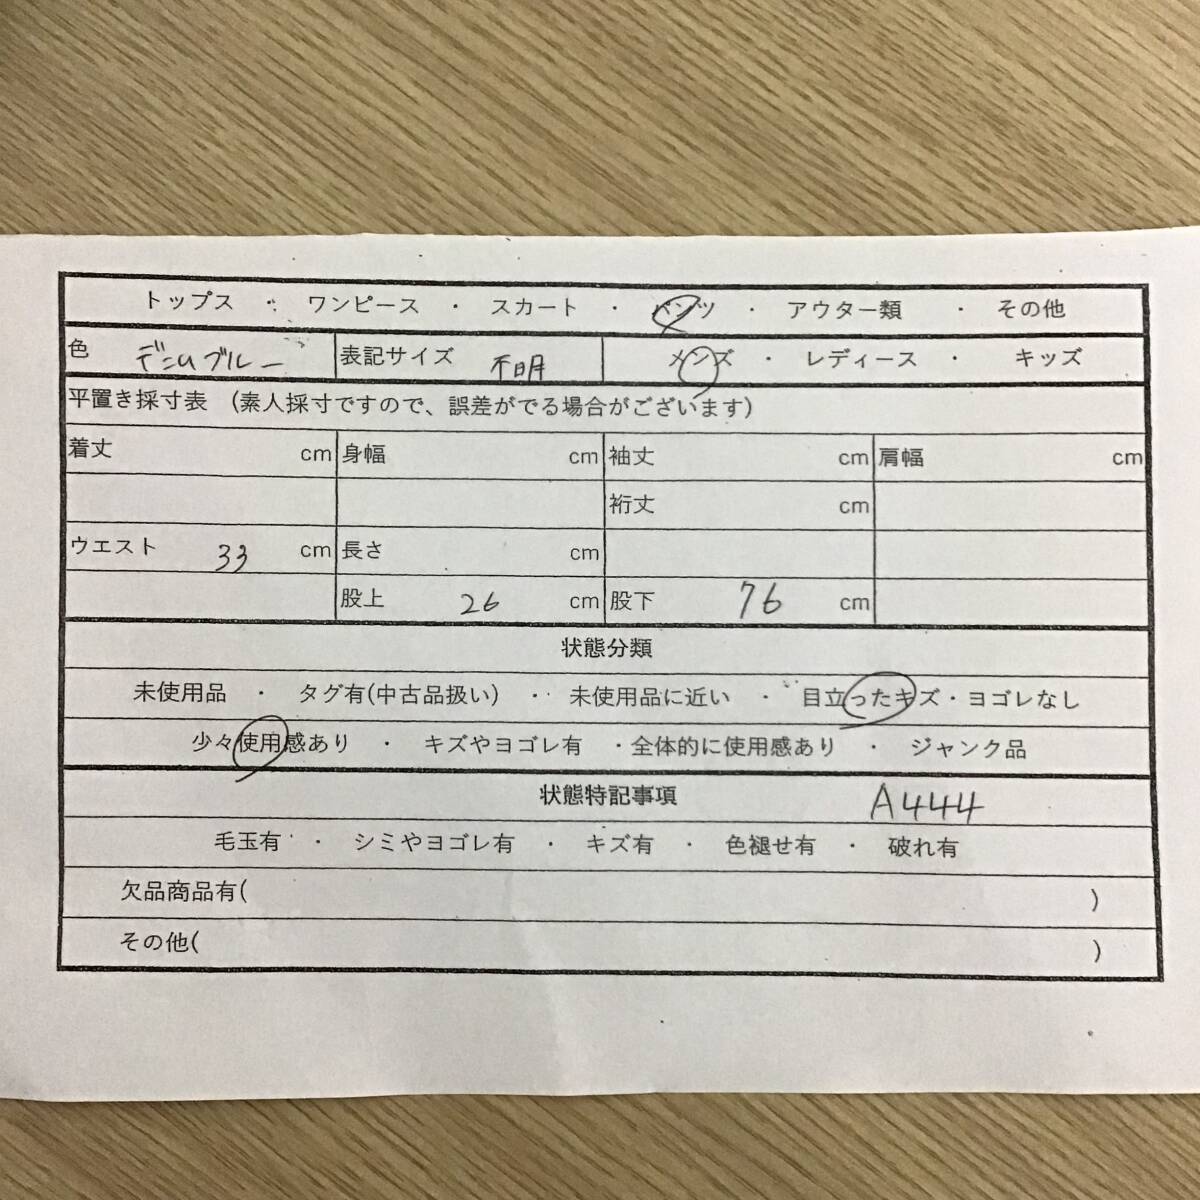 トップス ・ ワンピース ・ スカート ・ パンツ ・ アウター類 ・ その他
色 デニムブルー 表記サイズ 不明 メンズ ・ レディース ・ キッズ
平置き採寸表 (素人採寸ですので、誤差がでる場合がございます)
着丈 cm 身幅 cm 袖丈 cm 肩幅 cm
裄丈 cm
ウエスト 33 cm 長さ cm
股上 26 cm 股下 76 cm
状態分類
未使用品 ・ タグ有(中古品扱い) ・ 未使用品に近い ・ 目立ったキズ・ヨゴレなし
少々使用感あり ・ キズやヨゴレ有 ・全体的に使用感あり ・ ジャンク品
状態特記事項 A444
毛玉有 ・ シミやヨゴレ有 ・ キズ有 ・ 色褪せ有 ・ 破れ有
欠品商品有( )
その他( )